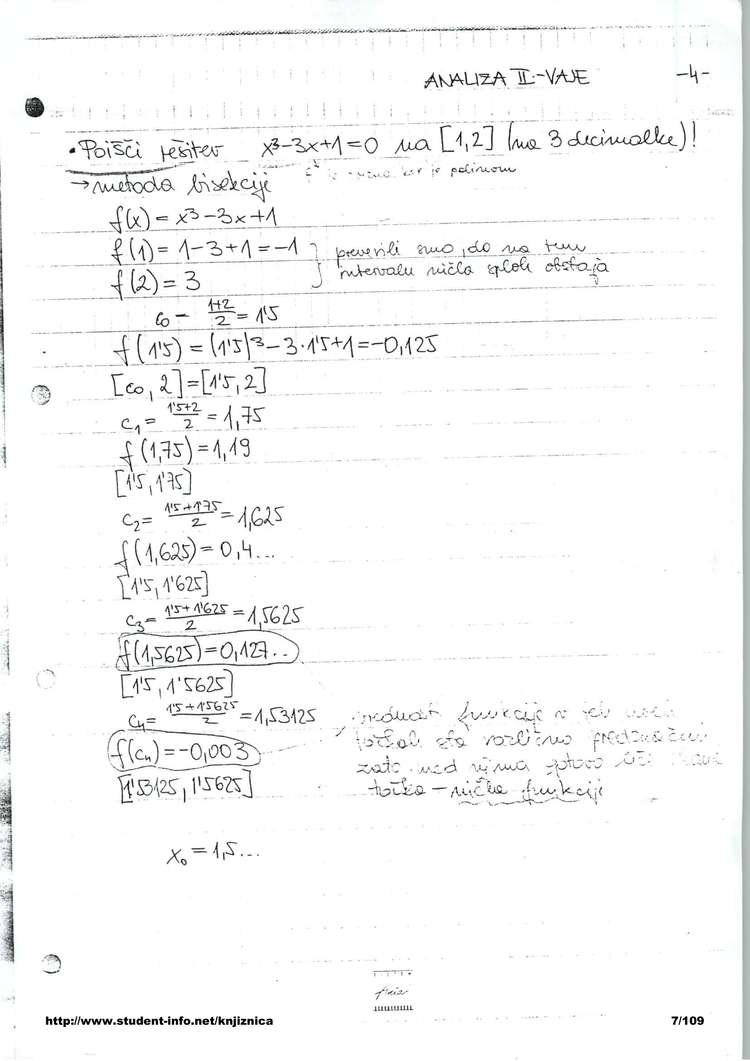 ANALIZA II.-VAJE -4-
• Poišči rešitev x³-3x+1=0 na [1,2] (na 3 decimalke)!
→ metoda bisekcije je polinom
f(x) = x³-3x+1
f(1) = 1-3+1 = -1
preverili smo, da na tem
f(2) = 3
intervalu ničla sploh obstaja
c₀ - (1+2)/2 = 1'5
f(1'5) = (1'5)³-3·1'5+1 = -0,125
[c₀, 2] = [1'5, 2]
c₁ = (1'5+2)/2 = 1,75
f(1,75) = 1,19
[1'5, 1'75]
c₂ = (1'5+1'75)/2 = 1,625
f(1,625) = 0,4...
[1'5, 1'625]
c₃ = (1'5+1'625)/2 = 1,5625
f(1,5625) = 0,127..
[1'5, 1'5625]
c₄ = (1'5+1'5625)/2 = 1,53125
vrednost funkcije v teh
f(c₄) = -0,003
točkah sta različno
[1'53125, 1'5625]
zato med njima gotovo
točka - ničla funkcije
x₀ = 1,5...
http://www.student-info.net/knjiznica 7/109